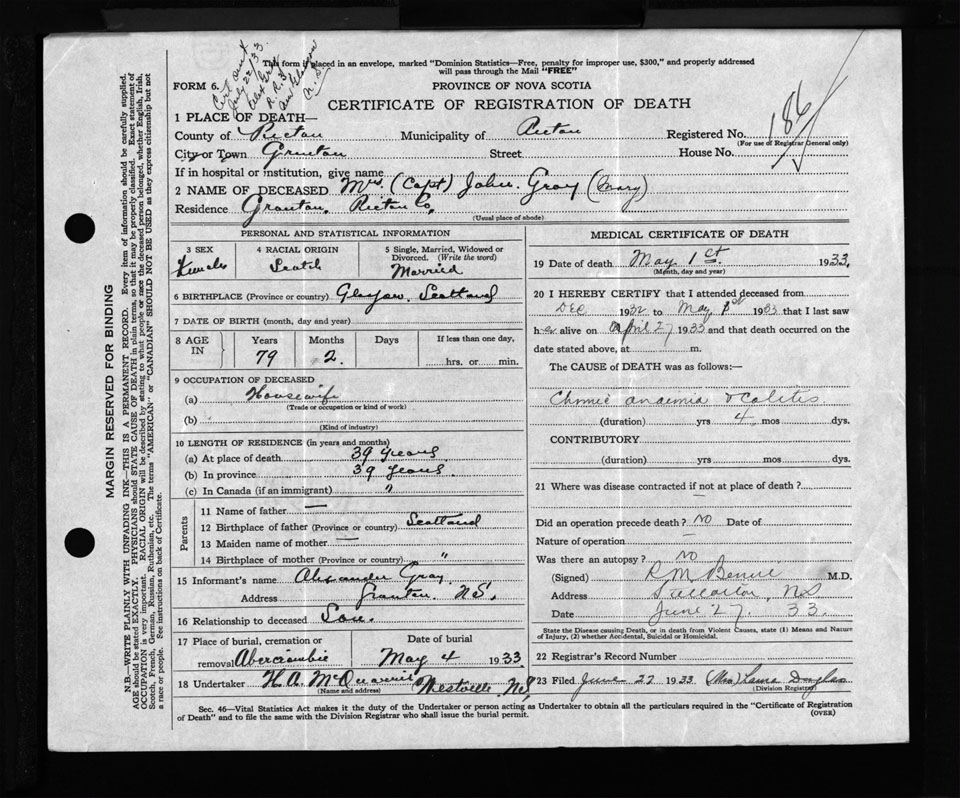 Cert out
July 22/33
Alex Gray
R.R.
New Glasgow
N.S.
This form is placed in an envelope, marked "Dominion Statistics—Free, penalty for improper use, $300," and properly addressed
will pass through the Mail "FREE"
FORM 6.
PROVINCE OF NOVA SCOTIA
CERTIFICATE OF REGISTRATION OF DEATH
1 PLACE OF DEATH—
County of Pictou Municipality of Pictou Registered No. 186
(For use of Registrar General only)
City or Town Granton Street House No.
If in hospital or institution, give name
2 NAME OF DECEASED Mrs. (Capt) John Gray (Mary)
Residence Granton, Pictou Co,
(Usual place of abode)
PERSONAL AND STATISTICAL INFORMATION
3 SEX Female
4 RACIAL ORIGIN Scotch
5 Single, Married, Widowed or Divorced. (Write the word) Married
6 BIRTHPLACE (Province or country) Glasgow, Scotland
7 DATE OF BIRTH (month, day and year)
8 AGE IN Years 79 Months 2 Days If less than one day, hrs. or min.
9 OCCUPATION OF DECEASED
(a) Housewife
(Trade or occupation or kind of work)
(b)
(Kind of industry)
10 LENGTH OF RESIDENCE (in years and months)
(a) At place of death 39 years
(b) In province 39 years
(c) In Canada (if an immigrant) "
Parents
11 Name of father —
12 Birthplace of father (Province or country) Scotland
13 Maiden name of mother —
14 Birthplace of mother (Province or country) "
15 Informant's name Alexander Gray
Address Granton, N.S.
16 Relationship to deceased Son.
17 Place of burial, cremation or removal Abercrombie
Date of burial May 4 1933
18 Undertaker H. A. McQuarrie Westville, N.S.
(Name and address)
MEDICAL CERTIFICATE OF DEATH
19 Date of death May 1st. 1933.
(Month, day and year)
20 I HEREBY CERTIFY that I attended deceased from
Dec 1932 to May 1933 that I last saw
her alive on April 27 1933 and that death occurred on the
date stated above, at m.
The CAUSE of DEATH was as follows:—
Chronic anaemia & Colitis
(duration) yrs 4 mos dys.
CONTRIBUTORY
(duration) yrs mos dys.
21 Where was disease contracted if not at place of death?
—
Did an operation precede death? No Date of
Nature of operation —
Was there an autopsy? No
(Signed) R M Benvie M.D.
Address Stellarton, N.S.
Date June 27. 33.
State the Disease causing Death, or in death from Violent Causes, state (1) Means and Nature
of Injury, (2) whether Accidental, Suicidal or Homicidal.
22 Registrar's Record Number
23 Filed June 27 1933 (Mrs) Laura Douglas
(Division Registrar)
Sec. 46—Vital Statistics Act makes it the duty of the Undertaker or person acting as Undertaker to obtain all the particulars required in the "Certificate of Registration
of Death" and to file the same with the Division Registrar who shall issue the burial permit.
(OVER)
MARGIN RESERVED FOR BINDING
N.B.—WRITE PLAINLY WITH UNFADING INK—THIS IS A PERMANENT RECORD. Every item of information should be carefully supplied.
AGE should be stated EXACTLY. PHYSICIANS should STATE CAUSE OF DEATH in plain terms, so that it may be properly classified. Exact statement of
OCCUPATION is very important. RACIAL ORIGIN will be described by stating to what people or race the deceased person belonged, whether English, Irish,
Scotch, French, German, Russian, Ruthenian, etc. The terms "AMERICAN" or "CANADIAN" SHOULD NOT BE USED as they express citizenship but not
a race or people. See instructions on back of Certificate.